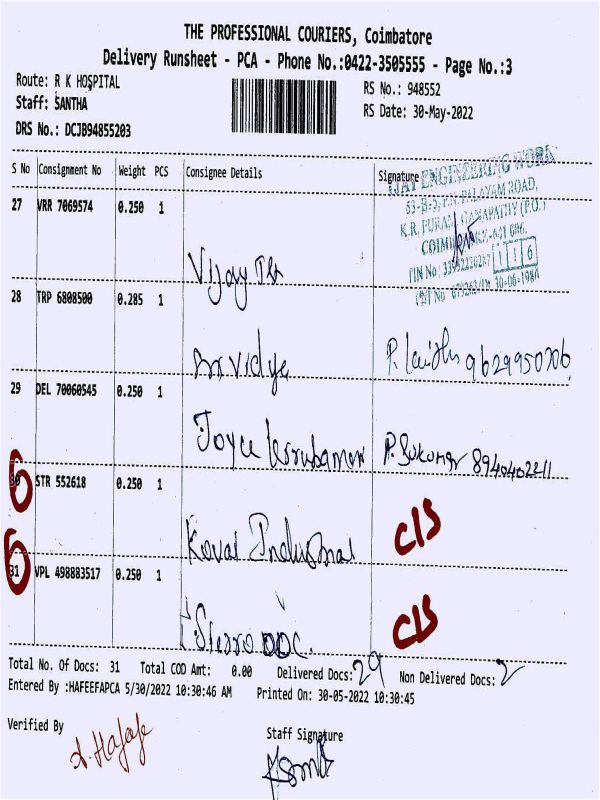 THE PROFESSIONAL COURIERS, Coimbatore
Delivery Runsheet - PCA - Phone No.:0422-3505555 - Page No.:3
Route: R K HOSPITAL RS No.: 948552
Staff: SANTHA RS Date: 30-May-2022
DRS No.: DCJB94855203
S No Consignment No Weight PCS Consignee Details Signature
ENGINEERING WORK
53-B-5, P.N. PALAYAM ROAD,
K.R. PURAM, GANAPATHY (P.O.)
27 VRR 7069574 0.250 1
Vijay
116
30-06-1980
28 TRP 6808500 0.285 1
Vidya P. 9629950706
29 DEL 70060545 0.250 1
Joyce P. Sukumar 8940402211
30 STR 552618 0.250 1
6
Kovai Industrial CIS
31 VPL 498883517 0.250 1
6
CIS
Total No. Of Docs: 31 Total COD Amt: 0.00 Delivered Docs: 29 Non Delivered Docs: 2
Entered By :HAFEEFAPCA 5/30/2022 10:30:46 AM Printed On: 30-05-2022 10:30:45
Verified By Staff Signature